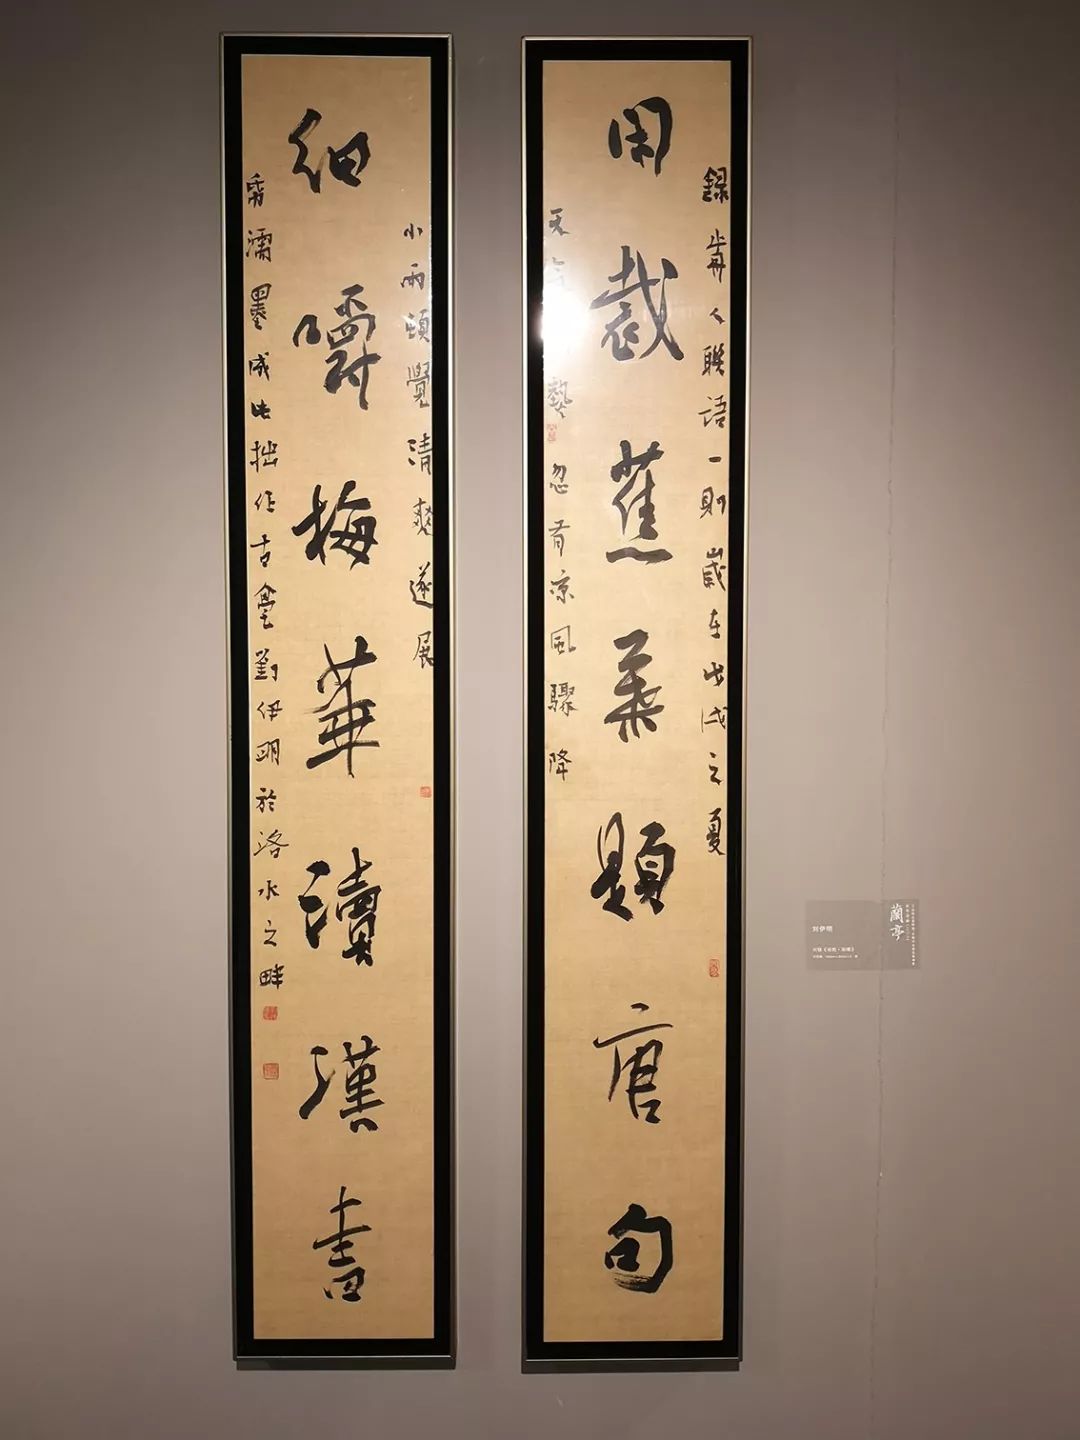 錄前人聯語一則歲在戊戌之夏
閑裁蕉葉題唐句
天熱忽有涼風驟降
小雨頓覺清爽遂展
細嚼梅華讀漢書
帋濡墨成此拙作古亳劉伊明於洛水之畔
蘭亭
刘伊明